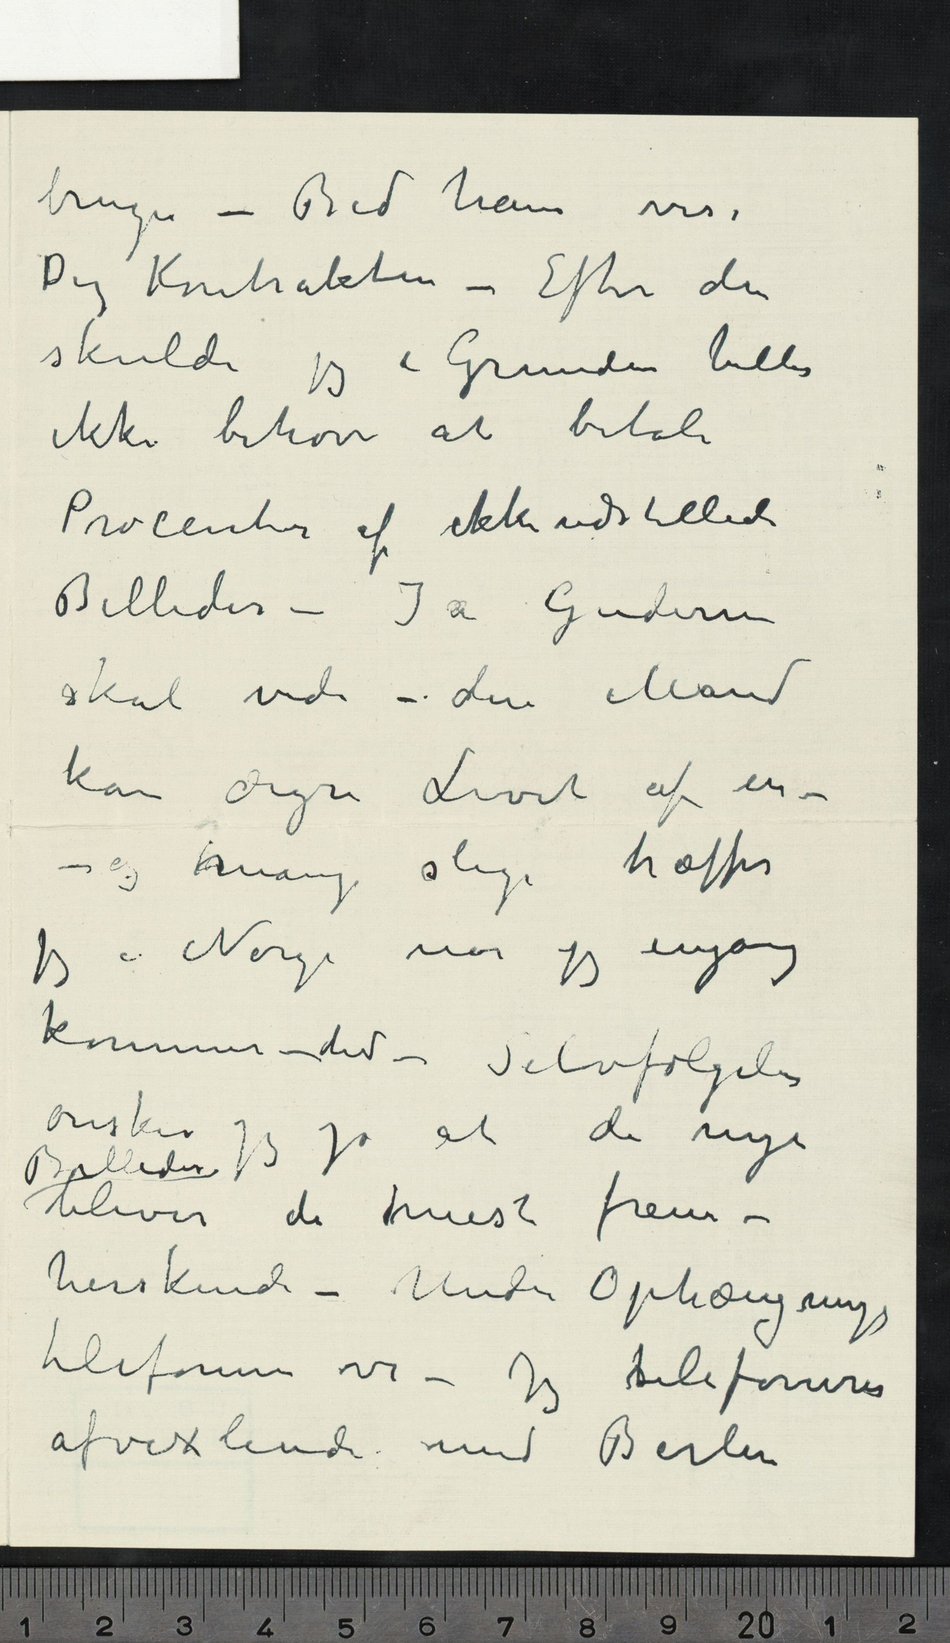 bruge – Bed ham vise
Dig Kontrakten – Efter den
skulde jeg i Grunden heller
ikke behøve at betale
Procenter af ikke udstillede
Billeder – Ja Guderne
skal vide – den Mand
kan ærgre Livet af en –
– og mange slige træffer
jeg i Norge når jeg engang
kommer – did – Selvfølgelig
ønsker jeg jo at de nye
Billeder
bliver de mest frem –
herskende – Under Ophængnings
telefonere vi – Jeg telefonerer
afvexlende med Berlin
1 2 3 4 5 6 7 8 9 20 1 2